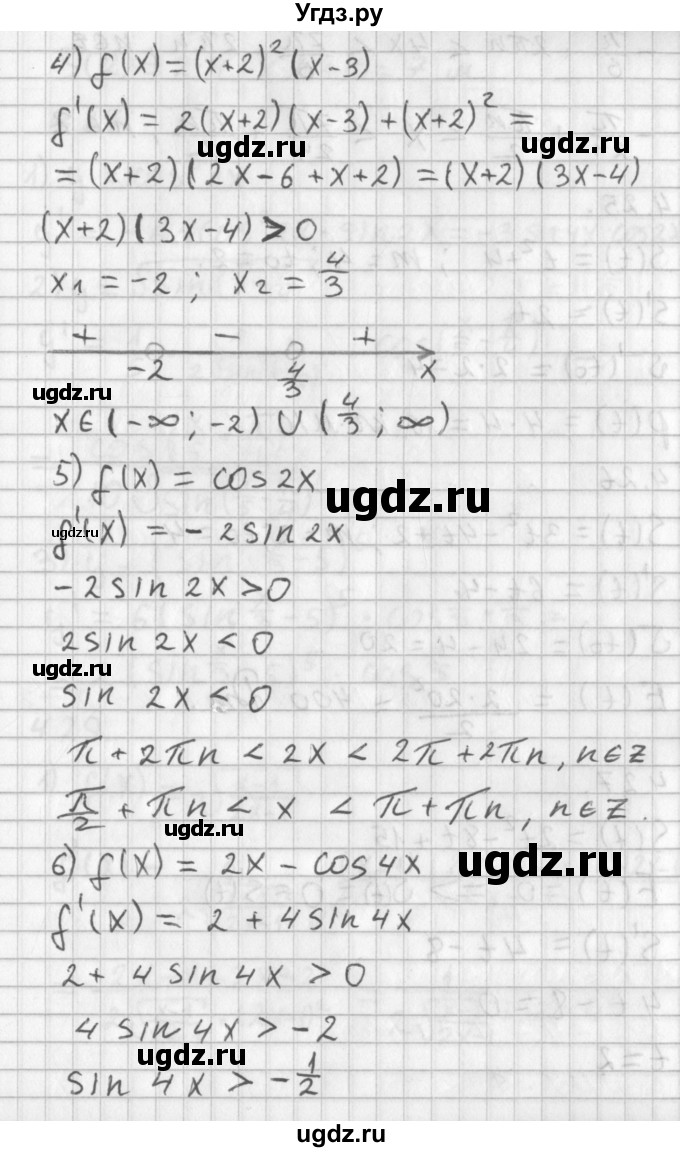 Угдз.ру
4) f(x) = (x+2)² (x-3)
f'(x) = 2(x+2)(x-3) + (x+2)² =
ugdz.ru ugdz.ru
= (x+2)(2x-6+x+2) = (x+2)(3x-4)
(x+2)(3x-4) > 0
x₁ = -2 ; x₂ = 4/3
+ - +
-2 4/3 x
ugdz.ru
x ∈ (-∞; -2) ∪ (4/3; ∞)
5) f(x) = cos 2x
ugdz.ru
f'(x) = - 2 sin 2x
ugdz.ru
- 2 sin 2x > 0
2 sin 2x < 0
ugdz.ru
sin 2x < 0
π + 2πn < 2x < 2π + 2πn, n ∈ Z
π/2 + πn < x < π + πn, n ∈ Z.
ugdz.ru
6) f(x) = 2x - cos 4x
ugdz.ru
f'(x) = 2 + 4 sin 4x
2 + 4 sin 4x > 0
4 sin 4x > -2
ugdz.ru
sin 4x > - 1/2
ugdz.ru